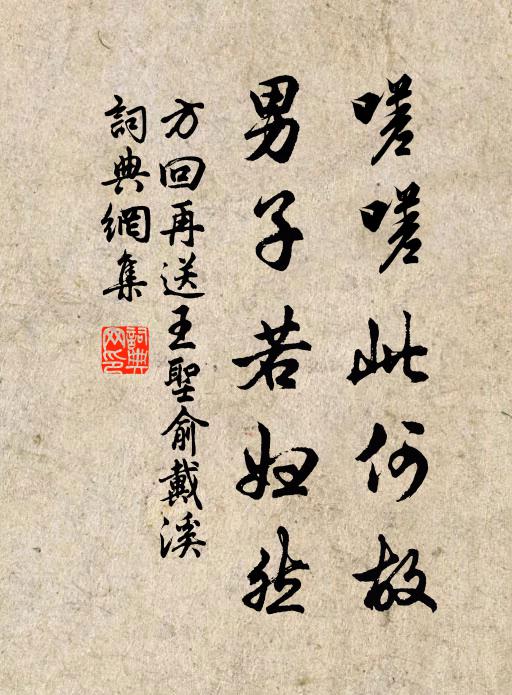 嗟嗟此何故
男子若妇然
方回再送王聖俞戴溪
詞典網集
詞典网印